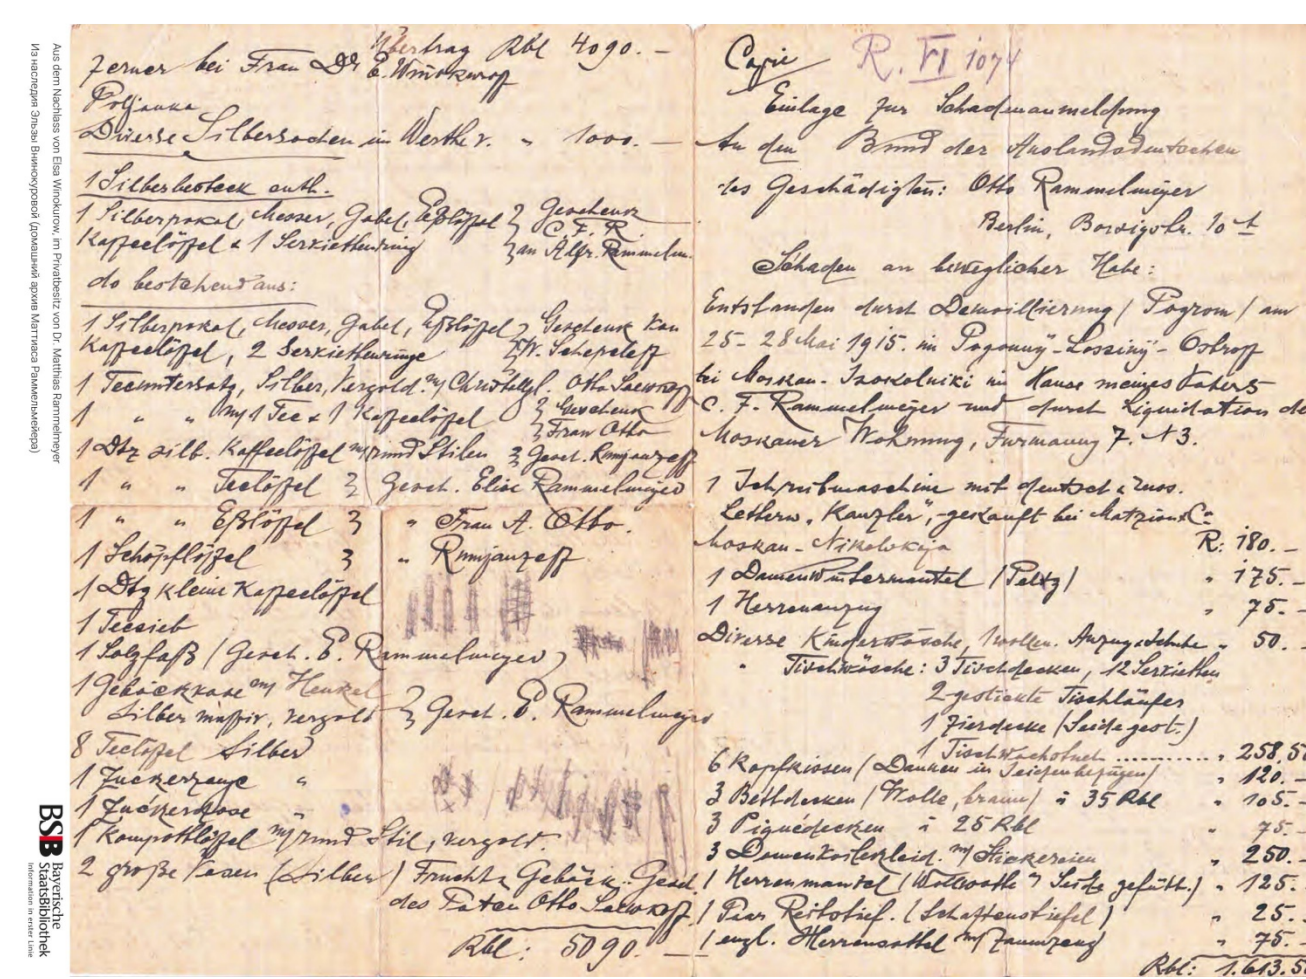 Aus dem Nachlass von Elsa Winokurow, im Privatbesitz von Dr. Matthias Rammelmeyer
Из наследия Эльзы Винокуровой (домашний архив Маттиаса Раммельмейера)
BSB Bayerische
StaatsBibliothek
Information in erster Linie
Übertrag Rbl 4090.—
Ferner bei Frau Dr E. Winokuroff
Poljanka
Diverse Silbersachen im Werthe v. " 1000.—
1 Silberbesteck enth.
1 Silberpokal, Messer, Gabel, Eßlöffel } Geschenk
C. F. R.
Kaffeelöffel & 1 Serviettenring } an Alfr. Rammelm.
do bestehend aus:
1 Silberpokal, Messer, Gabel, Eßlöffel } Geschenk von
Kaffeelöffel, 2 Serviettenringe
1 Teeuntersatz, Silber, Vergold. m/ Otto
" " m/ 1 Tee & 1 Kaffeelöffel } Geschenk
Frau Otto
1 Dtz silb. Kaffeelöffel m/ rund Stilen } Gesch. Rumjanzeff
1 " " Teelöffel } Gesch. Elise Rammelmeyer
1 " " Eßlöffel } " Frau A. Otto.
1 Schöpflöffel } " Rumjanzeff
1 Dtz kleine Kaffeelöffel
1 Teesieb
1 Salzfaß (Gesch. E. Rammelmeyer)
1 Gebäckvase m/ Henkel
Silber massiv, vergold } Gesch. E. Rammelmeyer
8 Teelöffel Silber
1 Zuckerzange "
1 Zuckerdose
1 Kompottlöffel m/ rund Stil, vergold.
2 große Vasen (Silber) Frucht & Gebäck. Gesch.
des Paten Otto
Rbl: 5090.—
Copie R. VI 1074
Einlage zur Schadenanmeldung
An den Bund der Auslandsdeutschen
des Geschädigten: Otto Rammelmeyer
Berlin, Borsigstr. 10 I
Schaden an beweglicher Habe:
Entstanden durch Demollierung (Pogrom) am
25-28 Mai 1915 im Pogonny-Lossiny-Ostroff
bei Moskau-Sokolniki im Hause meines Vaters
C. F. Rammelmeyer und durch Liquidation der
Moskauer Wohnung, Furmanny 7. N 3.
1 Schreibmaschine mit deutsch & russ.
Lettern "Kanzler", gekauft bei & Co
Moskau-Nikolskaja R: 180.—
1 Damenwintermantel (Peltz) " 175.—
1 Herrenanzug " 75.—
Diverse Kinderwäsche, 1 wollen. Anzug & Schuhe " 50.—
" Tischwäsche: 3 Tischdecken, 12 Servietten
2 gestickte Tischläufer
1 Zierdecke (Seide gest.)
1 Tischwachstuch .......... " 258,50
6 Kopfkissen (Daunen in Seidenbezügen) " 120.—
3 Bettdecken (Wolle, braun) à 35 Rbl " 105.—
3 Piquédecken à 25 Rbl " 75.—
3 m/ Stickereien " 250.—
1 Herrenmantel (Wollwatte & Seide gefütt.) " 125.—
1 Paar Reitstief. (Schaftenstiefel) " 25.—
1 engl. Herrensattel m/ Zaumzeug " 75.—
Rbl: 1.613.5